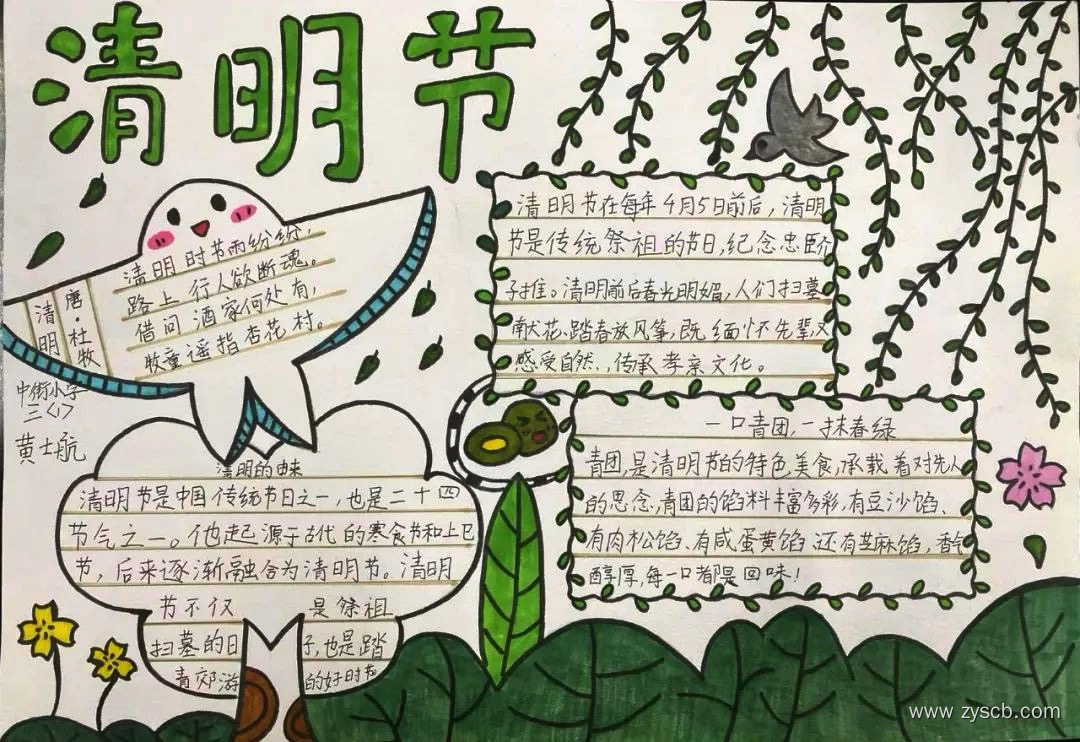 清明节
清明时节雨纷纷，
路上行人欲断魂。
借问酒家何处有，
牧童遥指杏花村。
唐·杜牧
清明
中街小学
三〈1〉
黄士航
清明节在每年4月5日前后，清明
节是传统祭祖的节日，纪念忠臣介
子推。清明前后春光明媚，人们扫墓
献花、踏春放风筝，既缅怀先辈又
感受自然，传承孝亲文化。
一口青团，一抹春绿
青团，是清明节的特色美食，承载着对先人
的思念，青团的馅料丰富多彩，有豆沙馅、
有肉松馅、有咸蛋黄馅、还有芝麻馅，香气
醇厚，每一口都是回味！
清明的由来
清明节是中国传统节日之一，也是二十四
节气之一。他起源于古代的寒食节和上巳
节，后来逐渐融合为清明节。清明
节不仅是祭祖
扫墓的日子，也是踏
青郊游的好时节
www.zyscb.com